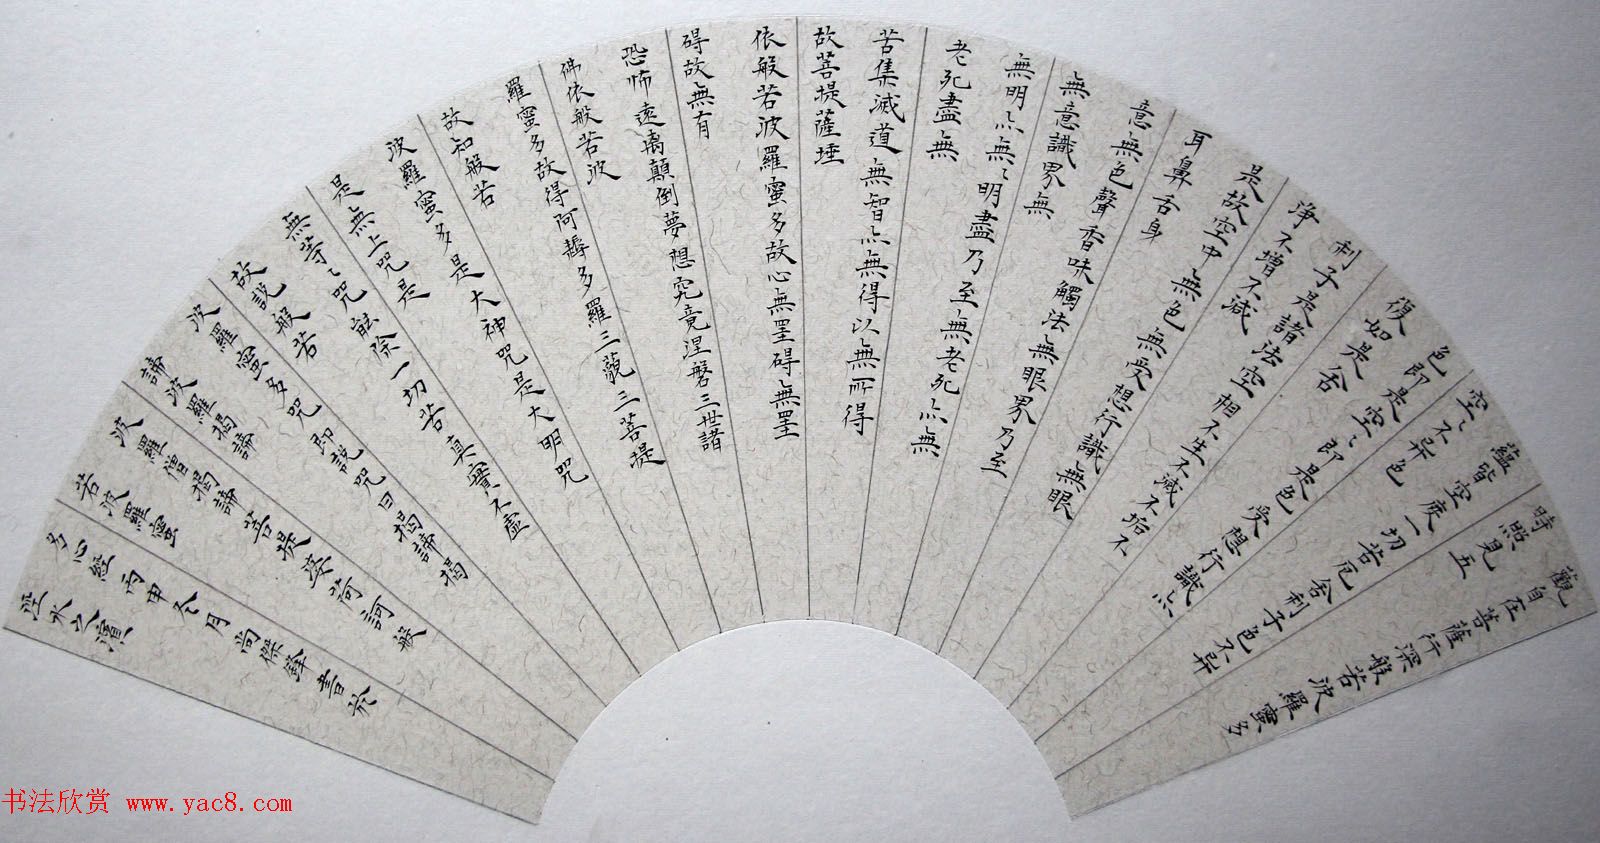 觀自在菩薩行深般若波羅蜜多
時照見五
蘊皆空度一切苦厄舍利子色不异
空〻不异色
色即是空〻即是色受想行識亦
復如是舍
利子是諸法空相不生不滅不垢不
淨不增不減
是故空中無色無受想行識無眼
耳鼻舌身
意無色聲香味觸法無眼界乃至
無意識界無
無明亦無〻明盡乃至無老死亦無
老死盡無
苦集滅道無智亦無得以無所得
故菩提薩埵
依般若波羅蜜多故心無罣碍無罣
碍故無有
恐怖遠离顛倒夢想究竟涅磐三世諸
佛依般若波
羅蜜多故得阿耨多羅三藐三菩提
故知般若
波羅蜜多是大神咒是大明咒
是無上咒是
無等〻咒能除一切苦真實不虛
故說般若
波羅蜜多咒即說咒曰揭諦揭
諦波羅揭諦
波羅僧揭諦菩提娑荷訶般
若波羅蜜
多心經丙申冬月尚傑鋒書於
淫水之濱
书法欣赏 www.yac8.com